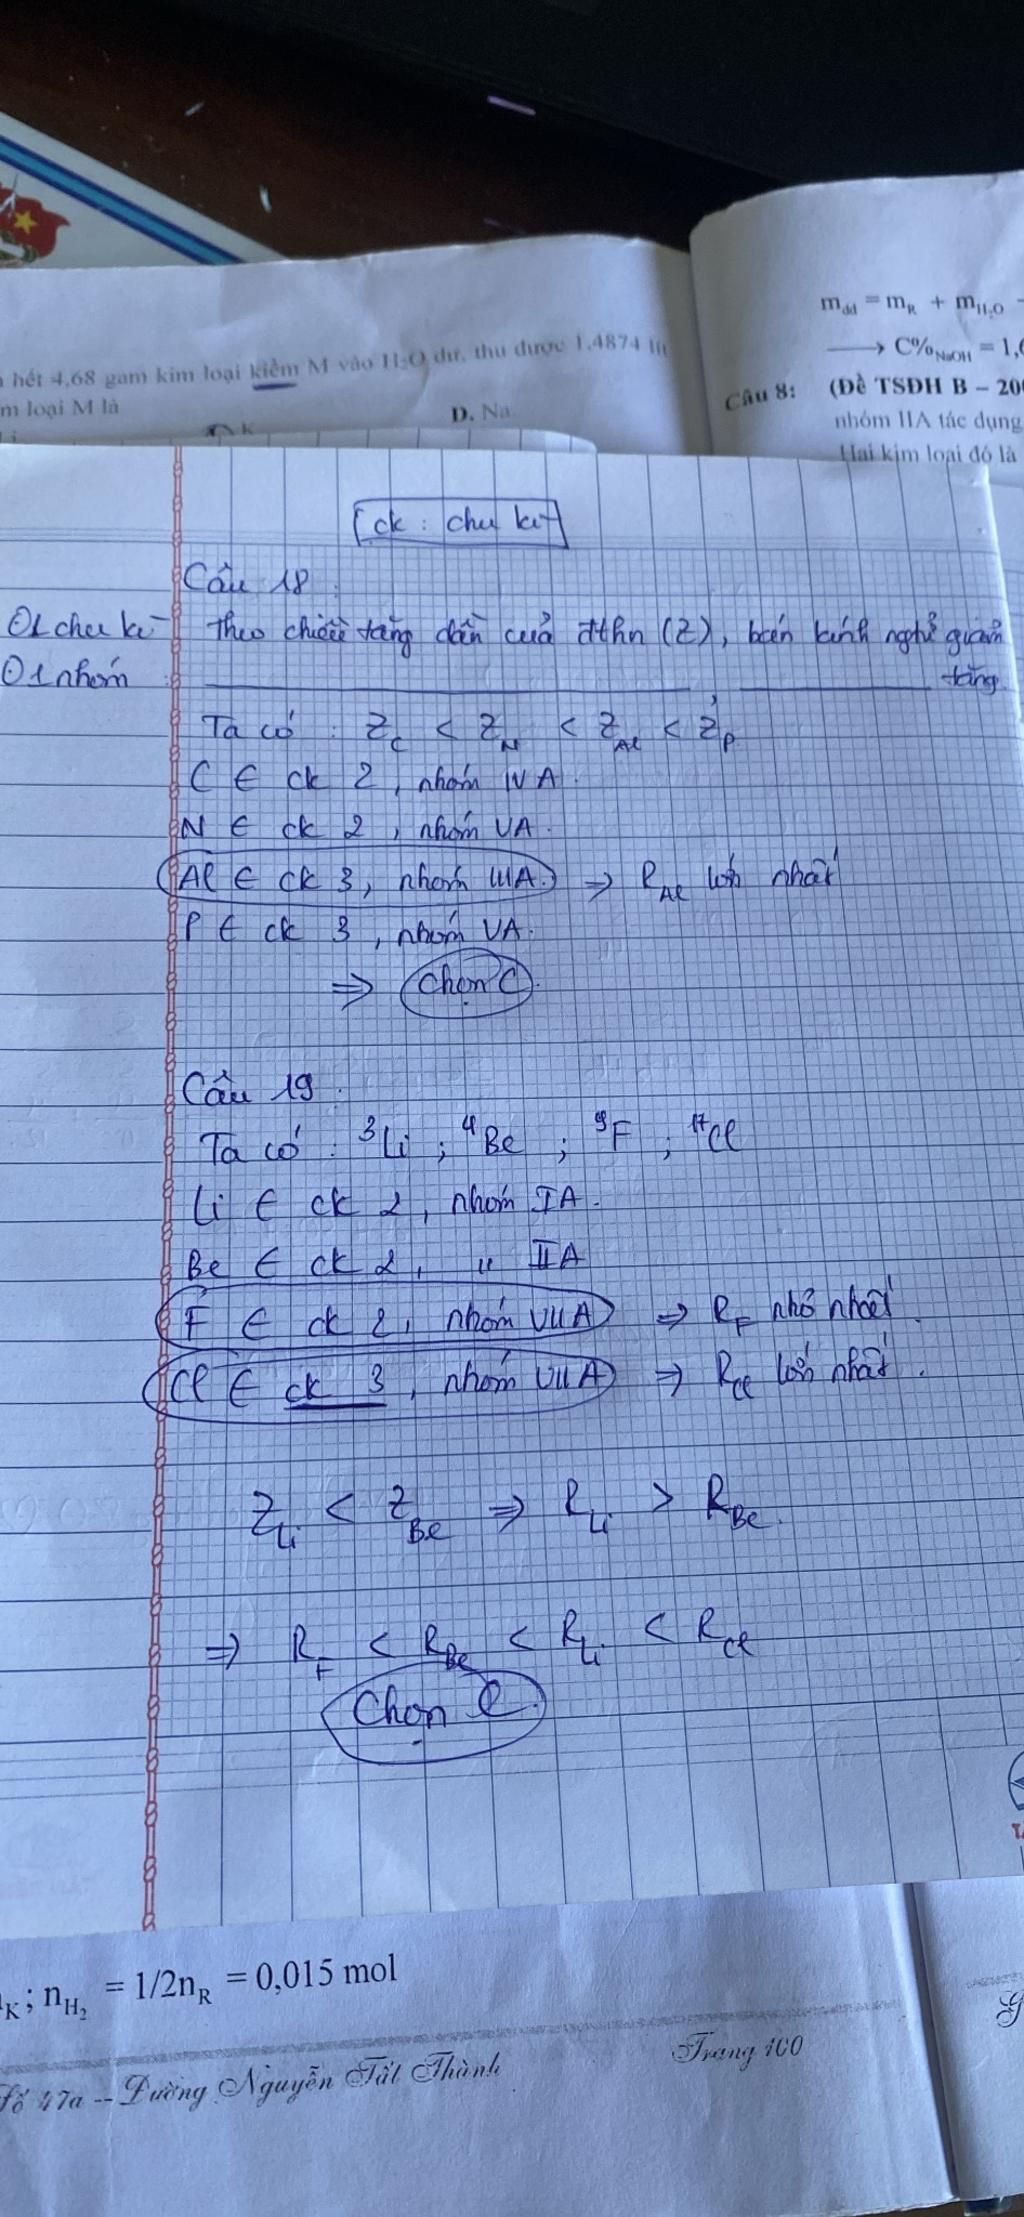 m_dd = m_R + m_H₂O
hết 4,68 gam kim loại kiềm M vào H₂O dư, thu được 1,4874 lít
⟶ C%_NaOH = 1,
m loại M là
D. Na
K
Câu 8: (Đề TSĐH B – 20
nhóm IIA tác dụng
Hai kim loại đó là
ck : chu kì
Câu 18.
1 chu kì theo chiều tăng dần của đthn (Z), bán kính ngtử giảm
1 nhóm : tăng
Ta có : Z_C < Z_N < Z_Al < Z_P
C ∈ ck 2, nhóm IVA.
N ∈ ck 2, nhóm VA.
Al ∈ ck 3, nhóm IIIA. ⇒ R_Al lớn nhất
P ∈ ck 3, nhóm VA.
⇒ Chọn C
Câu 19.
Ta có : ³Li ; ⁴Be ; ⁹F ; ¹⁷Cl
Li ∈ ck 2, nhóm IA.
Be ∈ ck 2, " IIA
F ∈ ck 2, nhóm VIIA ⇒ R_F nhỏ nhất.
Cl ∈ ck 3, nhóm VIIA ⇒ R_Cl lớn nhất.
Z_Li < Z_Be ⇒ R_Li > R_Be.
⇒ R_F < R_Be < R_Li < R_Cl
Chọn C.
K; n_H₂ = 1/2n_R = 0,015 mol
Số 47a -- Đường Nguyễn Tất Thành
Trang 100